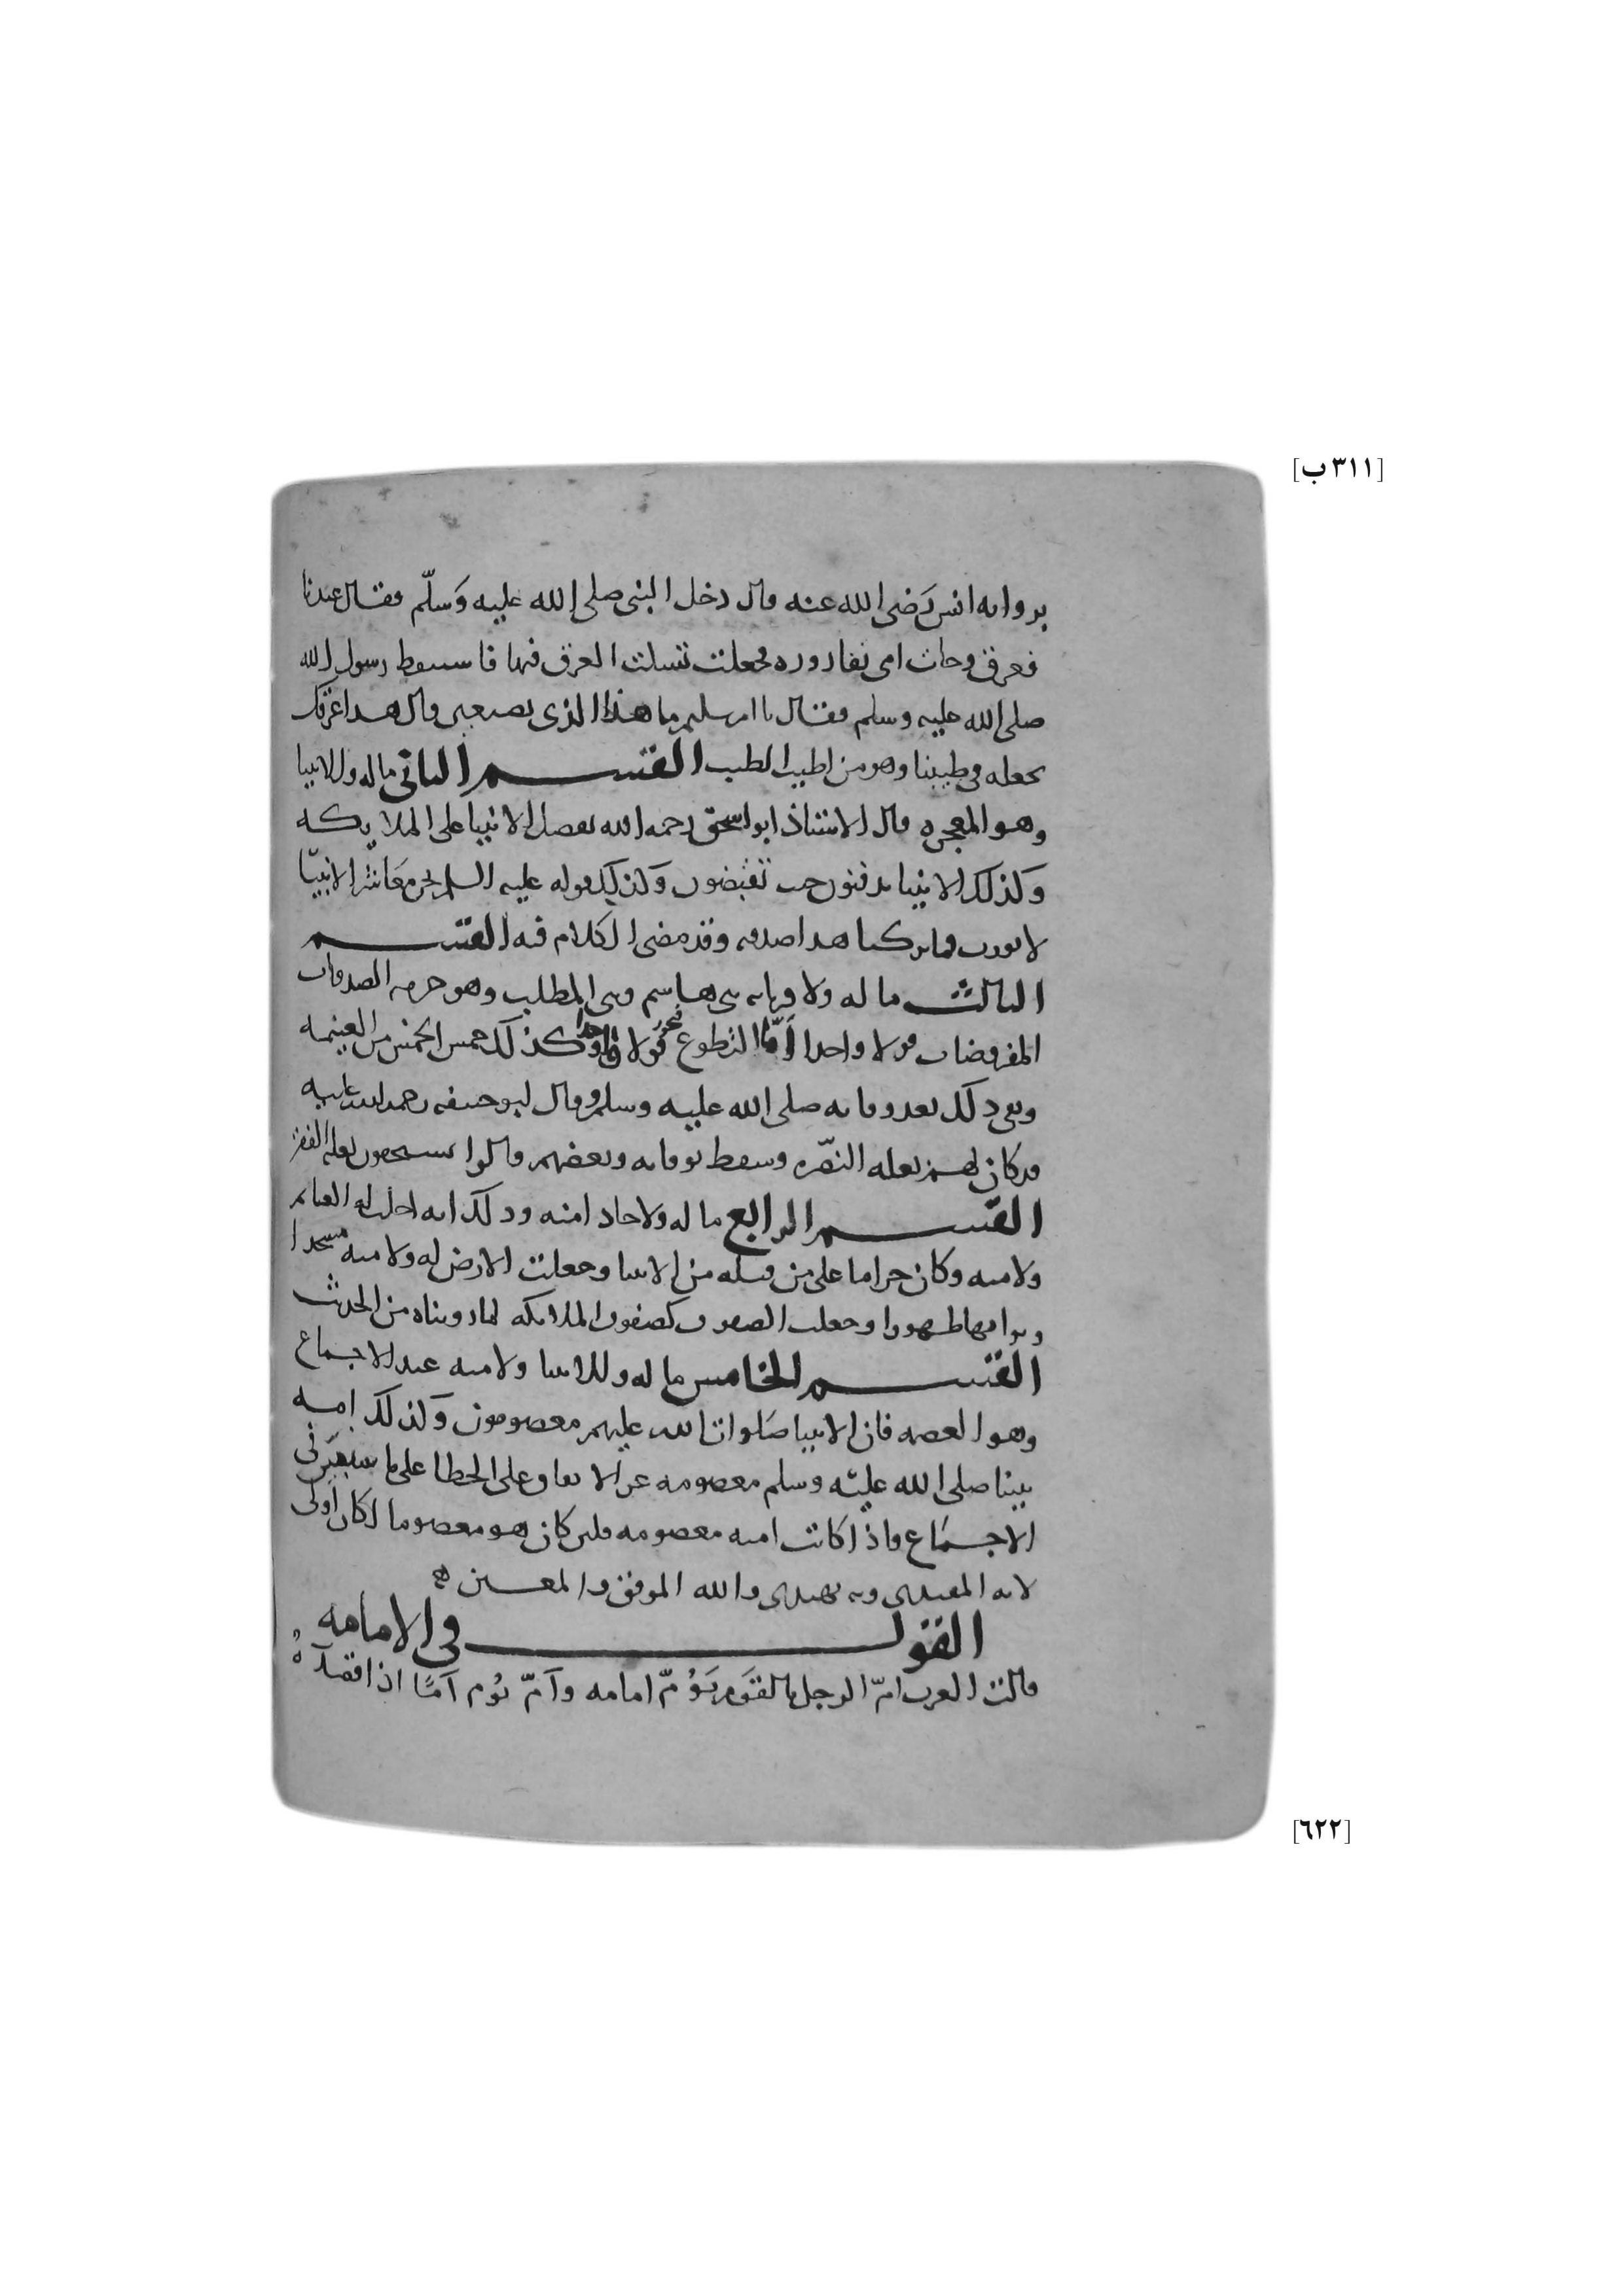 [٣١١ ب]
برواىه انس رَضى الله عنه قال دخل النبى صلى الله عليه وَسلّم فقال عندنا
فعرق وجات امى بقاروره فجعلت تسلت العرق فيها فاستيقظ رسول الله
صلى الله عليه وسلم فقال يا ام سليم ما هذا الذى تصنعين قال هدا عرقك
نجعله فى طيبنا وهو من اطيب الطيب القسم الثانى ما له وللانبيا
وهو المعجزه قال الاستاذ ابو اسحق رحمه الله تفضل الانبيا على الملايكه
وَكذلك الانبيا يدفنون حيث تقبضون وَكذلك قوله عليه السلم نحن مَعَاشر الانبيَا
لا نورث ما تركنا هدا صدقه وقد مضى الكلام فيه القسم
الثالث ما له ولاقربايه بنى هاشم وبنى المطلب وهو حرمه الصدقات
المفروضات قولا واحدا وَأمّا التطوع قولا كذلك خمس الخمس من الغنيمه
وبقى ذلك بعد وفاته صلى الله عليه وسلم وقال ابو حنيفه رحمه الله عليه
قد كان لهم بعله النصّره وسقط بوفاته وبعضهم قالوا يستحقون بعله الفقر
القسم الرابع ما له ولاحاد امته وذلك انه احلت له الغنايم
ولامته وكان حراما على من قبله من الانبيا وجعلت الارض له ولامته مسجدا
وترابها طهورا وجعلت الصفوف كصفوف الملايكه لما رويناه من الحديث
القسم الخامس ما له وللانبيا ولامته عند الاجماع
وهو العصمه فان الانبيا صَلوات الله عليهم معصومون وَكذلك امه
نبينا صلى الله عليه وسلم معصومه عن الاتفاق على الخطا على ما سيبين فى
الاجماع فاذا كانت امته معصومه فلين كان هو معصوما لكان اَولى
لانه المقتدى وبه يهتدى والله الموفق والمعين
القول فى الامامه
قالت العرب امّ الرجل بالقوَم يَؤمّ امامه وآمّ يؤم اَمًا اذا قصد
[٦٢٢]